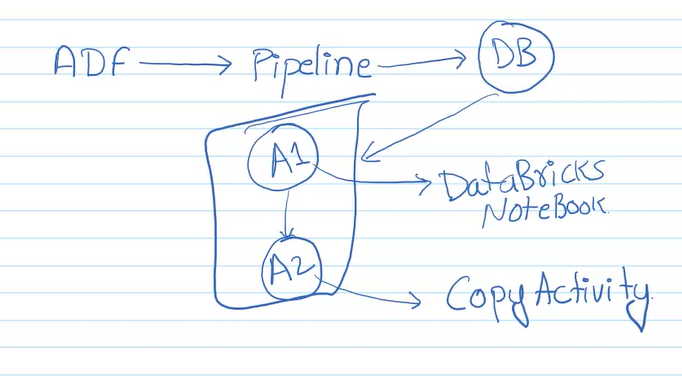 ADF Pipeline DB
A1
DataBricks
NoteBook.
A2
Copy Activity.